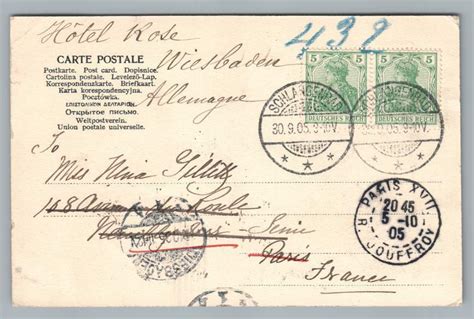 Hôtel Rose
432
Wiesbaden
Allemagne
CARTE POSTALE
Postkarte. Post card. Dopisnice.
Cartolina postale. Levelező-Lap.
Korrespondenzkarte. Briefkaart.
Karta korespondencyjna.
Pocztówka.
ΕΠΙΣΤΟΛΙΚΟΝ ΔΕΛΤΑΡΙΟΝ.
Открытое письмо.
Weltpostverein.
Union postale universelle.
5 5 5 5
DEUTSCHES REICH
DEUTSCHES REICH
SCHLANGENBAD
30.9.05.
SCHLANGENBAD
30.9.05.
To
Miss Nina
148
Seine
Paris
France
PARIS XVII
20 45
5 -10
05
R. JOUFFROY